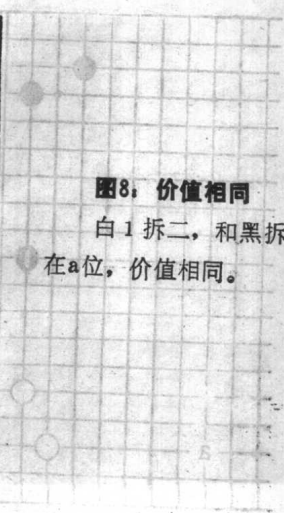 图8：价值相同
白1拆二，和黑拆
在a位，价值相同。